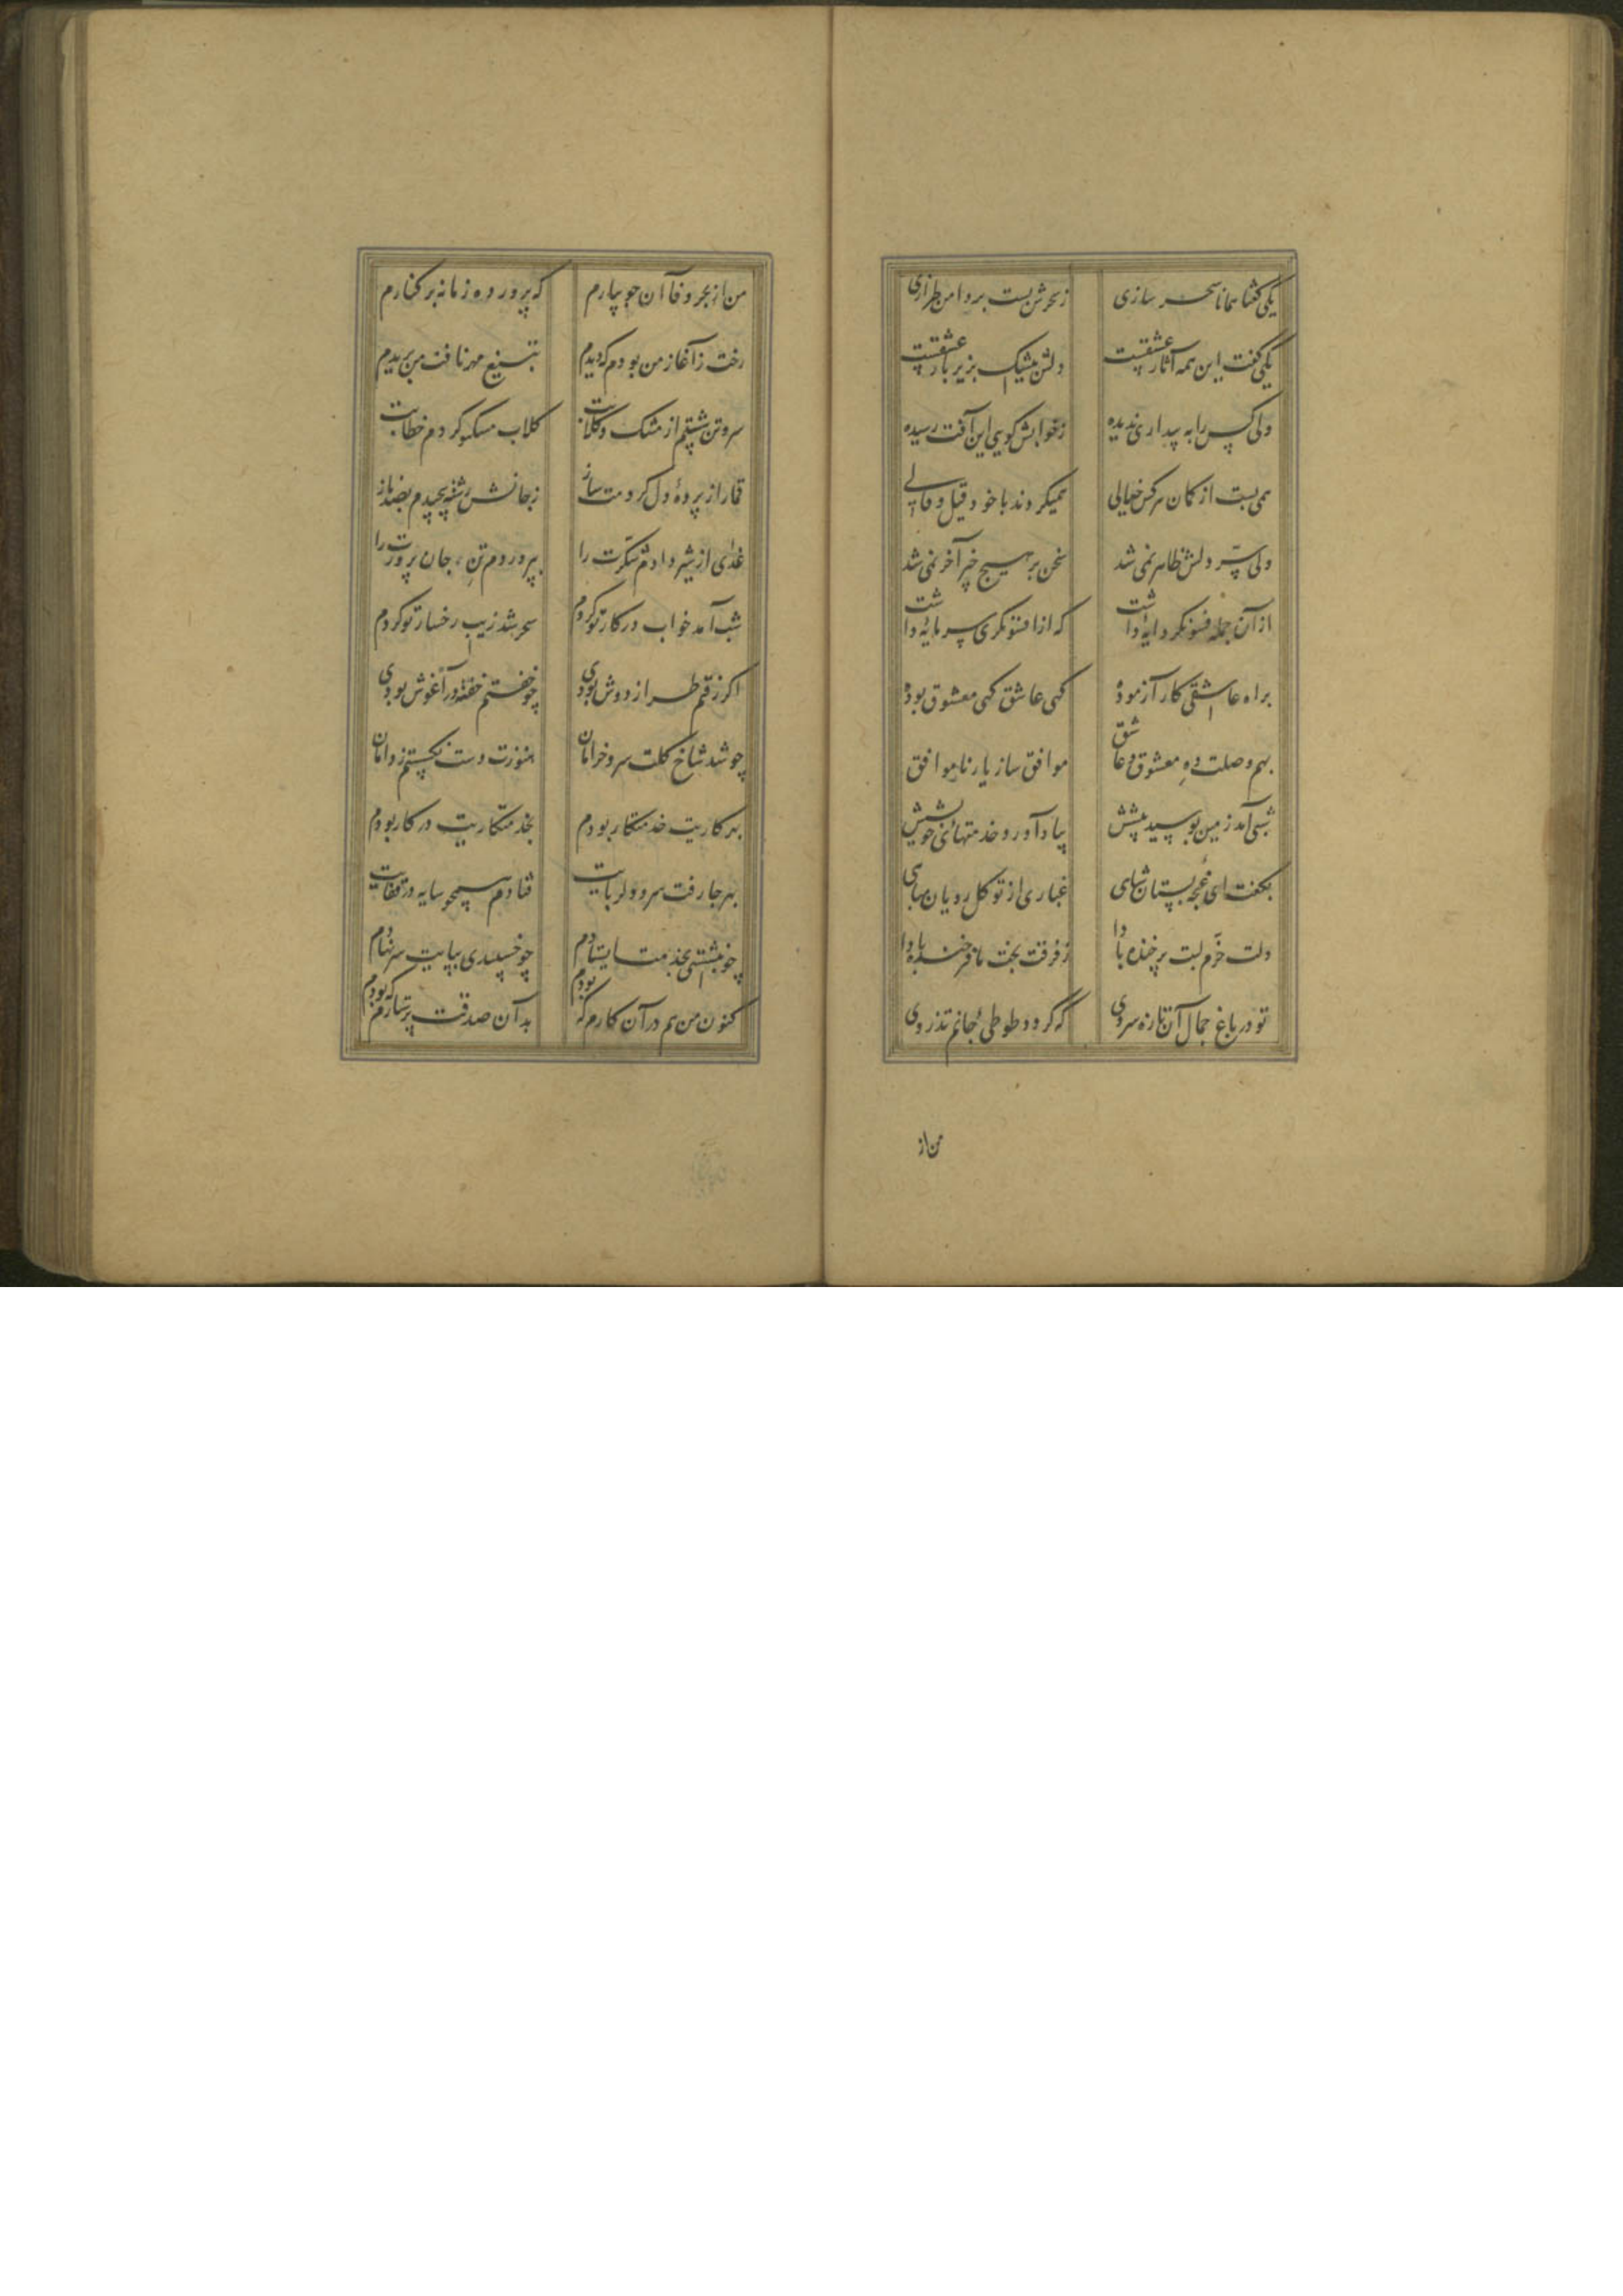 یکی گفتا همانا سحر سازی ز سحرش بست بر دامن طرازی
یکی گفت این همه آثار عشقست دلش بیشک بزیر بار عشقست
ولی کس را به بیداری ندیده ز خوابش کویی این آفت رسیده
همی بست از کمان هر کس خیالی همیکردند با خود قیل و قالی
ولی سرّ دلش ظاهر نمی شد سخن بر هیچ خیر آخر نمی شد
از آن جمله فسونکر دایهٔ داشت که از افسونکری سرمایهٔ داشت
براه عاشقی کار آزمودهٔ کهی عاشق کهی معشوق بودهٔ
بهم وصلت دهِ معشوق و عاشق موافق ساز یار ناموافق
شبی آمد زمین بوسید پیشش بیاد آورد خدمتهای خویشش
بکفت ای غنچهٔ بستان شاهی غباری از تو کل رویان مباهی
دلت خرّم لبت پرخنده بادا ز فرقت بخت ما فرخنده بادا
تو در باغ جمال آن تازه سروی که کردد طوطیٔ جانم تذروی
من از
من از بحر وفا آن جویبارم که پرورده زمانه بر کنارم
رخت ز آغاز من بودم که دیدم بتیغ مهر نافت من بریدم
سر و تن شستم از مشک و کلابت کلاب مشکبو کردم خطابت
قمار از پردهٔ دل کردمت ساز ز جانش رشته پیچیدم بصد ناز
غذای از شیر دادم شکّرت را بپروردم تنِ جان پرورت را
شب آمد خواب در کار تو کردم سحر شد زیب رخسار تو کردم
اکر رفتم طراز دوش بودی چو خفتم خفته در آغوش بودی
چو شد شاخ کلت سرو خرامان هنوزت دست نکسستم ز دامان
بهر کاریت خدمتکار بودم بخدمتکاریت در کار بودم
بهر جا رفت سرو دلربایت فتادم همچو سایه در قفایت
چو بنشستی بخدمت ایستادم چو خسپیدی بپایت سر نهادم
کنون من هم در آن کارم که بودم بدآن صدقت پرستارم که بودم